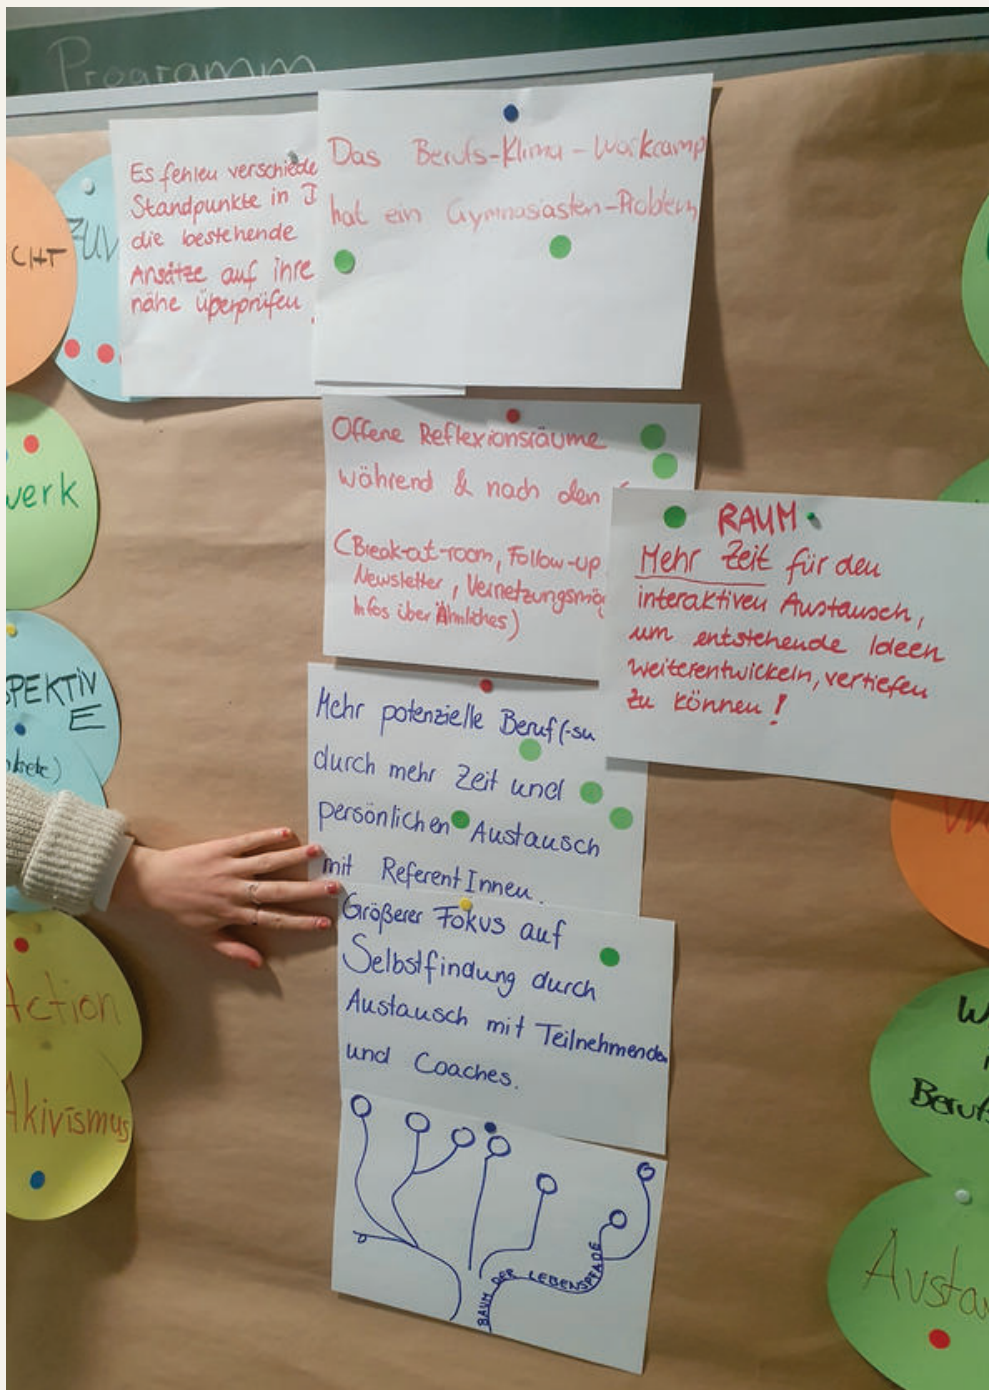 Programm
CHT
ZUV
Es fehlen verschiede
Standpunkte in
die bestehende
Ansätze auf ihre
nähe überprüfen
Das Berufs-Klima-Workcamp
hat ein Gymnasiasten-Problem
werk
Offene Reflexionsräume
während & nach den
(Break-out-room, Follow-up
Newsletter, Vernetzungsmög
Infos über Ähnliches)
RAUM
Mehr Zeit für den
interaktiven Austausch,
um entstehende Ideen
weiterentwickeln, vertiefen
zu können!
SPEKTIV
E
Mehr potenzielle Beruf(-su
durch mehr Zeit und
persönlichen Austausch
mit ReferentInnen.
Größerer Fokus auf
Selbstfindung durch
Austausch mit Teilnehmenden
und Coaches.
BAUM DER LEBENSPFADE
Action
Akivismus
W
Berufs
Austa